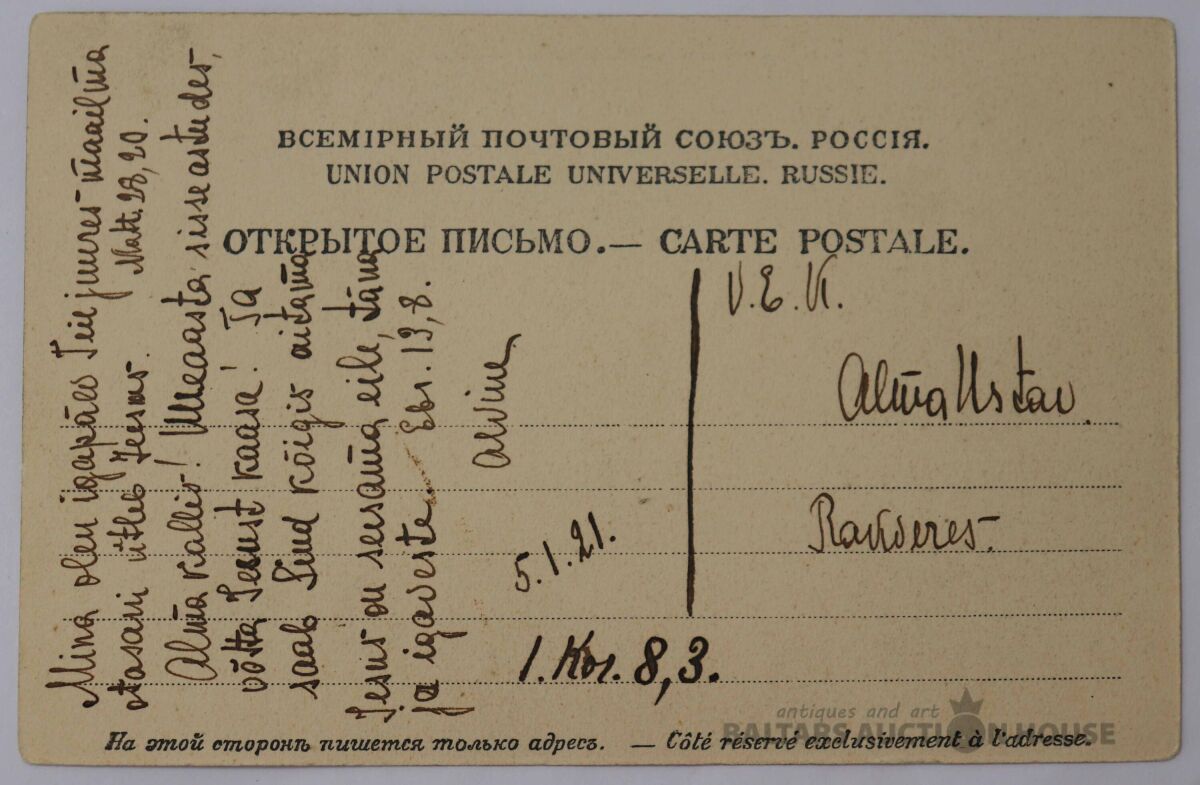 ВСЕМІРНЫЙ ПОЧТОВЫЙ СОЮЗЪ. РОССІЯ.
UNION POSTALE UNIVERSELLE. RUSSIE.
ОТКРЫТОЕ ПИСЬМО.— CARTE POSTALE.
Mina olen igapäew Teie juures maailma
otsani ütleb Jeesus. Matt. 28,20.
Alma kallis! Uueaasta sisse astudes,
võtta Jesust kaasa! Ta
saab Sind kõigis aitama
Jesus on seesama eile, täna
ja igaveste. Ebr. 13,8.
Alvine
5.1.21.
1. Kor. 8,3.
V. E. K.
Alma Ustav
Rakveres.
На этой сторонѣ пишется только адресъ. — Côté réservé exclusivement à l'adresse.
antiques and art
BALTARS AUCTION HOUSE